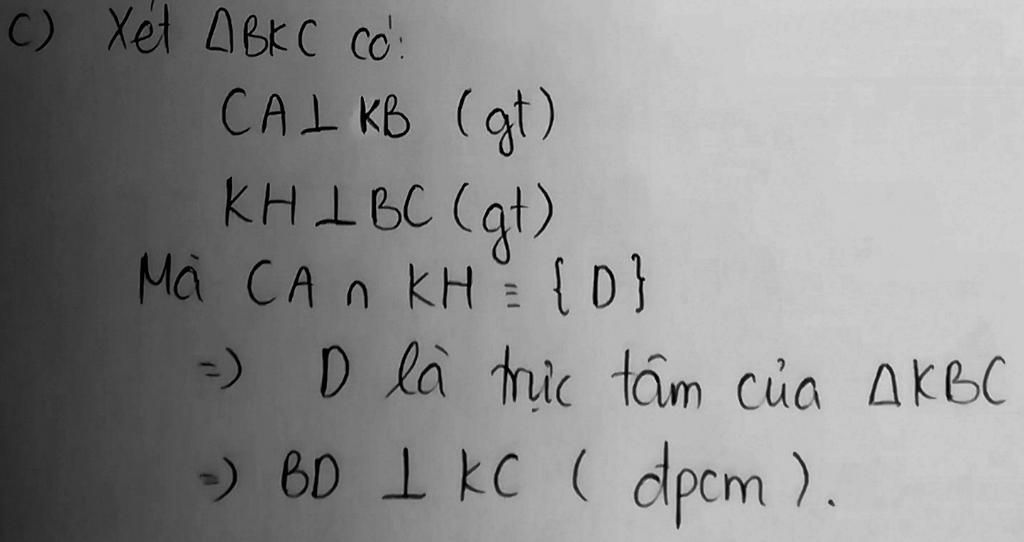 c) Xét ΔBKC có:
CA⊥KB (gt)
KH⊥BC (gt)
Mà CA ∩ KH ≡ {D}
=) D là trực tâm của ΔKBC
=) BD ⊥ KC (dpcm).